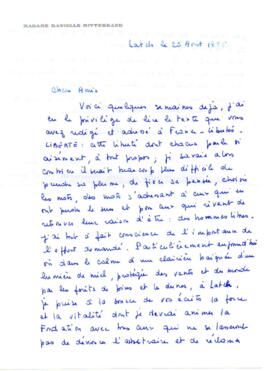 MADAME DANIELLE MITTERRAND
Latche le 23 Août
Chers Amis
Voici quelques semaines déjà, j'ai
eu le privilège de lire le texte que vous
avez rédigé et adressé à France-Libertés.
LIBERTÉ : cette liberté dont chacun parle si
aisément, à tout propos ; je savais alors
combien il était beaucoup plus difficile de
prendre sa plume, de fixer sa pensée, choisir
les mots, des mots s'adressant à ceux qui en
ont perdu le sens et pour ceux qui rêvent de
retrouver leur raison d'être : des hommes libres.
J'ai tout à fait conscience de l'importance de
l'effort demandé. Particulièrement aujourd'hui
où dans le calme d'une clairière baignée d'une
lumière de miel, protégée des vents et du monde
par les forêts de pins et la dune, à Latche,
je puise à la source de vos écrits la force
et la vitalité dont je devrai animer la
Fondation avec tous ceux qui ne se lasseront
pas de dénoncer l'arbitraire et de réclamer